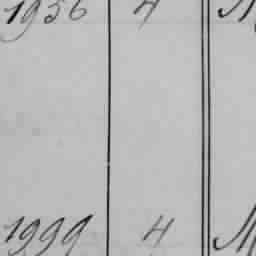 1956 4
1999 4 M